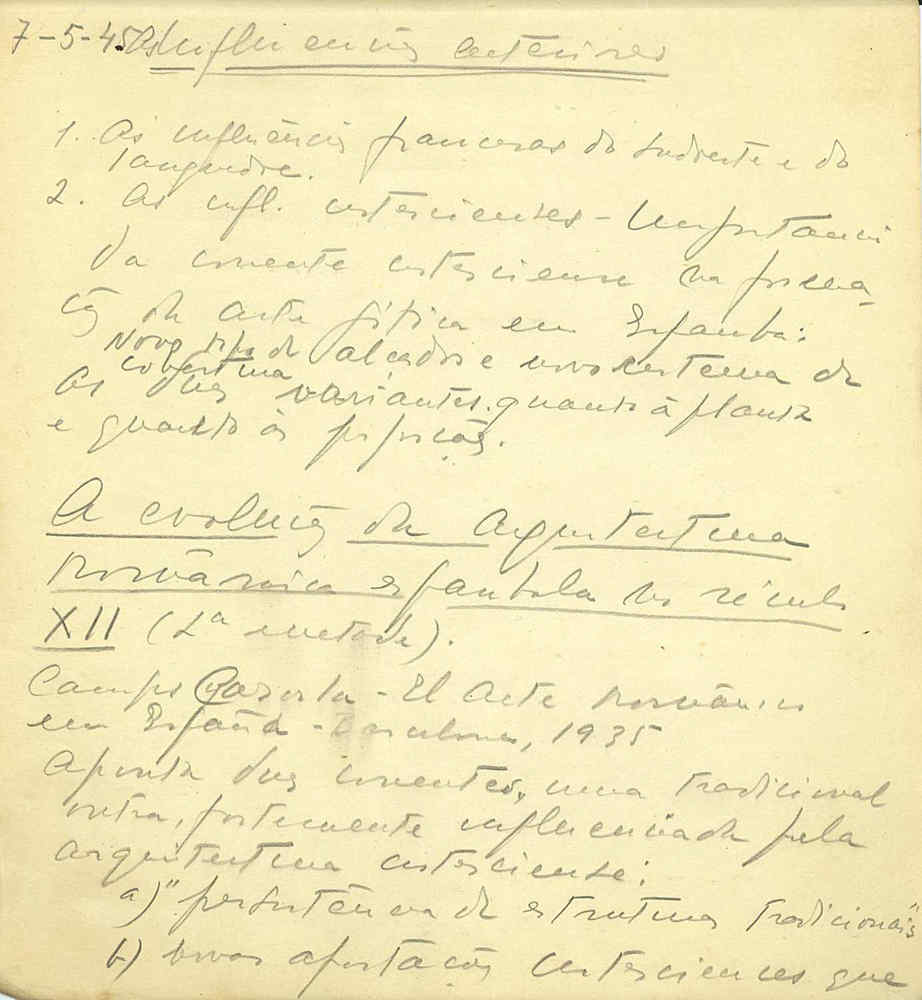 7-5-45 As Influências exteriores
1. As influências francesas do sudoeste e do
Languedoc.
2. As infl. cistercienses - Importanci
da corrente cisterciense na forma-
ção da arte gótica em Espanha:
Novo tipo de alçados e novo sistema de
cobertura
As duas variantes. quanto à planta
e quanto às
A evolução da Arquitectura
Românica espanhola no século
XII (2ª metade).
Camps Cazorla - El Arte Románico
em España - Barcelona, 1935
Aponta duas correntes, uma tradicional
outra, fortemente influenciada pela
arquitectura cisterciense:
a) "persistência de estruturas tradicionais"
b) novas aportações cistercienses que